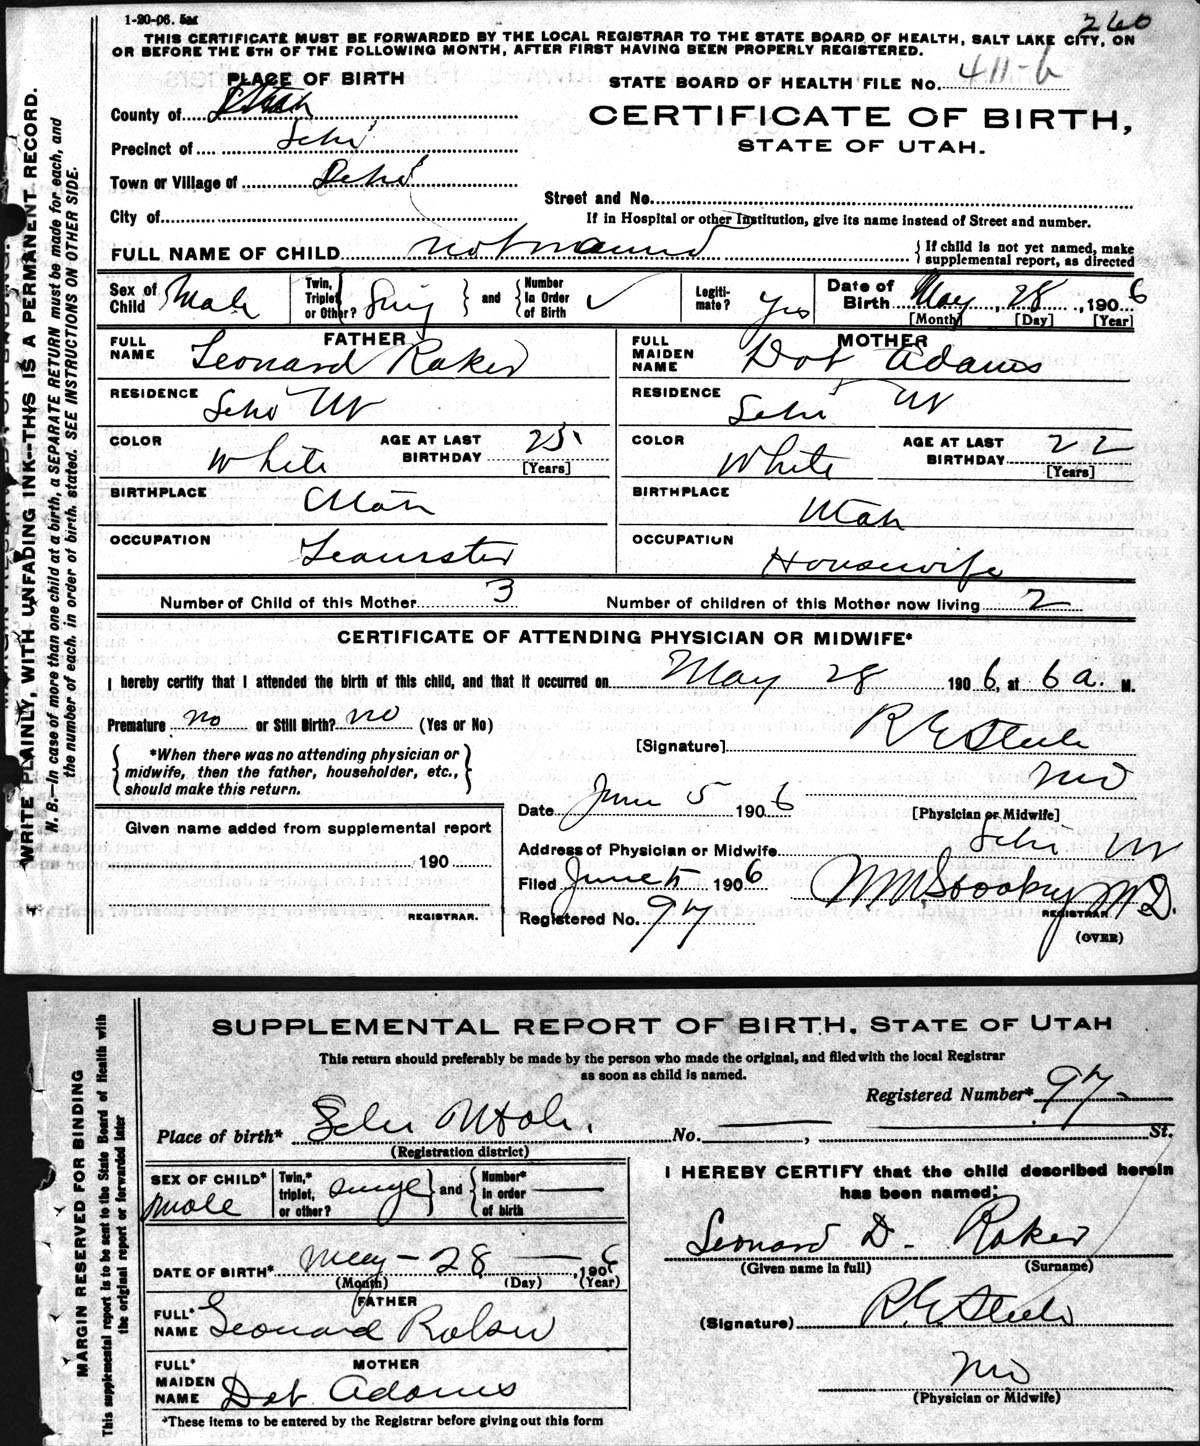 1-20-06. 5M
260
THIS CERTIFICATE MUST BE FORWARDED BY THE LOCAL REGISTRAR TO THE STATE BOARD OF HEALTH, SALT LAKE CITY, ON
OR BEFORE THE 5TH OF THE FOLLOWING MONTH, AFTER FIRST HAVING BEEN PROPERLY REGISTERED.
PLACE OF BIRTH
STATE BOARD OF HEALTH FILE No. 411-6
County of Utah
CERTIFICATE OF BIRTH,
STATE OF UTAH.
Precinct of Lehi
Town or Village of Lehi
Street and No.
City of
If in Hospital or other Institution, give its name instead of Street and number.
FULL NAME OF CHILD not named
{ If child is not yet named, make supplemental report, as directed
Sex of Child Male
Twin, Triplet or Other? Sing } and { Number In Order of Birth ✓
Legiti-mate? Yes
Date of Birth May 28, 1906
[Month] [Day] [Year]
FATHER
FULL NAME Leonard Raker
RESIDENCE Lehi Ut
COLOR White
AGE AT LAST BIRTHDAY 25 [Years]
BIRTHPLACE Utah
OCCUPATION Teamster
MOTHER
FULL MAIDEN NAME Dot Adams
RESIDENCE Lehi Ut
COLOR White
AGE AT LAST BIRTHDAY 22 [Years]
BIRTHPLACE Utah
OCCUPATION Housewife
Number of Child of this Mother 3
Number of children of this Mother now living 2
CERTIFICATE OF ATTENDING PHYSICIAN OR MIDWIFE*
I hereby certify that I attended the birth of this child, and that it occurred on May 28 1906, at 6 a. M.
Premature no or Still Birth? no (Yes or No)
{ *When there was no attending physician or midwife, then the father, householder, etc., should make this return. }
[Signature] R E Steele
MD
[Physician or Midwife]
Date June 5 1906
Address of Physician or Midwife Lehi Ut
Given name added from supplemental report
190
REGISTRAR.
Filed June 5 1906
Registered No. 97
M.D.
REGISTRAR
(OVER)
WRITE PLAINLY, WITH UNFADING INK--THIS IS A PERMANENT RECORD.
N. B.—In case of more than one child at a birth, a SEPARATE RETURN must be made for each, and
the number of each, in order of birth, stated. SEE INSTRUCTIONS ON OTHER SIDE.
SUPPLEMENTAL REPORT OF BIRTH, STATE OF UTAH
This return should preferably be made by the person who made the original, and filed with the local Registrar
as soon as child is named.
Registered Number* 97-
Place of birth* Lehi Utah. No. , St.
(Registration district)
SEX OF CHILD* Male
Twin,* triplet, or other? single } and { Number* in order of birth
DATE OF BIRTH* May - 28 1906
(Month) (Day) (Year)
FATHER
FULL* NAME Leonard Raker
MOTHER
FULL* MAIDEN NAME Dot Adams
*These items to be entered by the Registrar before giving out this form
I HEREBY CERTIFY that the child described herein
has been named:
Leonard D. Raker
(Given name in full) (Surname)
(Signature) R. E. Steele
MD
(Physician or Midwife)
MARGIN RESERVED FOR BINDING
This supplemental report is to be sent to the State Board of Health with
the original report or forwarded later